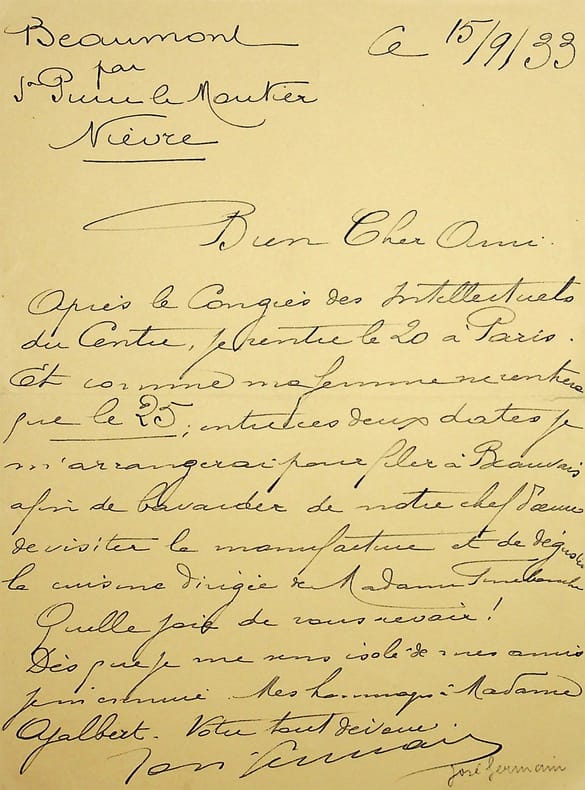 Beaumont
par
St Pierre le Moutier
Nièvre
Ce 15/9/33
Bien Cher Ami.
Après le Congrès des Intellectuels
du Centre, je rentre le 20 à Paris.
Et comme ma femme ne rentrera
que le 25, entre ces deux dates je
m'arrangerai pour filer à Beauvais
afin de bavarder de notre chef d'œuvre
de visiter la manufacture et de déguster
la cuisine dirigée de Madame
Quelle joie de vous revoir !
Dès que je me sens isolé de mes amis
je m'ennuie. Mes hommages à Madame
Ajalbert. Votre tout dévoué.
José Germain
José Germain